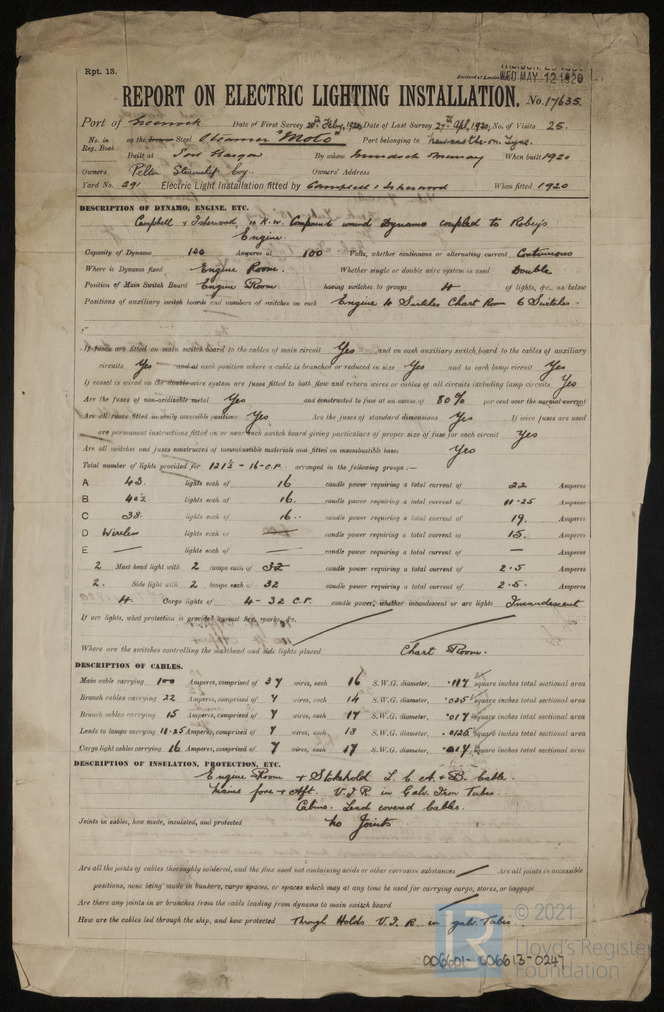 Rpt. 13.
WED MAY 12 1920
REPORT ON ELECTRIC LIGHTING INSTALLATION. No. 17635.
Port of Greenock Date of First Survey 20th Feby, 1920 Date of Last Survey 27th Apl, 1920, No. of Visits 25.
No. in Reg. Book on the Iron or Steel Steamer "Moto" Port belonging to Newcastle-on-Tyne.
Built at Port Glasgow By whom Dunlop Murray When built 1920
Owners Pelton Steamship Coy. Owners' Address
Yard No. 291 Electric Light Installation fitted by Campbell & Isherwood When fitted 1920
DESCRIPTION OF DYNAMO, ENGINE, ETC.
Campbell & Isherwood, 10 K.W. Compound wound Dynamo coupled to Robey's
Engine.
Capacity of Dynamo 100 Amperes at 100 Volts, whether continuous or alternating current Continuous
Where is Dynamo fixed Engine Room. Whether single or double wire system is used Double
Position of Main Switch Board Engine Room having switches to groups 4 of lights, &c., as below
Positions of auxiliary switch boards and numbers of switches on each Engine 4 Switches Chart Room 6 Switches.
If fuses are fitted on main switch board to the cables of main circuit Yes and on each auxiliary switch board to the cables of auxiliary
circuits Yes and at each position where a cable is branched or reduced in size Yes and to each lamp circuit Yes
If vessel is wired on the double wire system are fuses fitted to both flow and return wires or cables of all circuits including lamp circuits Yes
Are the fuses of non-oxidizable metal Yes and constructed to fuse at an excess of 80% per cent over the normal current
Are all fuses fitted in easily accessible positions Yes Are the fuses of standard dimensions Yes If wire fuses are used
are permanent instructions fitted on or near each switch board giving particulars of proper size of fuse for each circuit Yes
Are all switches and fuses constructed of incombustible materials and fitted on incombustible bases Yes
Total number of lights provided for 121½ - 16 C.P. arranged in the following groups :—
A 43. lights each of 16 candle power requiring a total current of 22 Amperes
B 40½ lights each of 16. candle power requiring a total current of 11.25 Amperes
C 38. lights each of 16.. candle power requiring a total current of 19. Amperes
D Wireless lights each of — candle power requiring a total current of 15. Amperes
E — lights each of — candle power requiring a total current of — Amperes
2 Mast head light with 2 lamps each of 32 candle power requiring a total current of 2.5 Amperes
2. Side light with 2 lamps each of 32 candle power requiring a total current of 2.5. Amperes
4 Cargo lights of 4-32 C.P. candle power, whether incandescent or arc lights Incandescent
If arc lights, what protection is provided against fire, sparks, &c.
Where are the switches controlling the masthead and side lights placed Chart Room.
DESCRIPTION OF CABLES.
Main cable carrying 100 Amperes, comprised of 37 wires, each 16 S.W.G. diameter, .117 square inches total sectional area
Branch cables carrying 22 Amperes, comprised of 7 wires, each 14 S.W.G. diameter, .025 square inches total sectional area
Branch cables carrying 15 Amperes, comprised of 7 wires, each 17 S.W.G. diameter, .017 square inches total sectional area
Leads to lamps carrying 11.25 Amperes, comprised of 7 wires, each 18 S.W.G. diameter, .0125 square inches total sectional area
Cargo light cables carrying 16 Amperes, comprised of 7 wires, each 17 S.W.G. diameter, .017 square inches total sectional area
DESCRIPTION OF INSULATION, PROTECTION, ETC.
Engine Room & Stokehold L. C. A. & B. Cable.
Mains fore & Aft. V.I.R. in Galv. Iron Tubes.
Cabins. Lead covered Cables.
Joints in cables, how made, insulated, and protected No Joints
Are all the joints of cables thoroughly soldered, and the flux used not containing acids or other corrosive substances — Are all joints in accessible
positions, none being made in bunkers, cargo spaces, or spaces which may at any time be used for carrying cargo, stores, or baggage
Are there any joints in or branches from the cable leading from dynamo to main switch board —
How are the cables led through the ship, and how protected Through Holds V.I.R. in galv. Tubes.
© 2021
Lloyd's Register
Foundation
006601-006613-0247